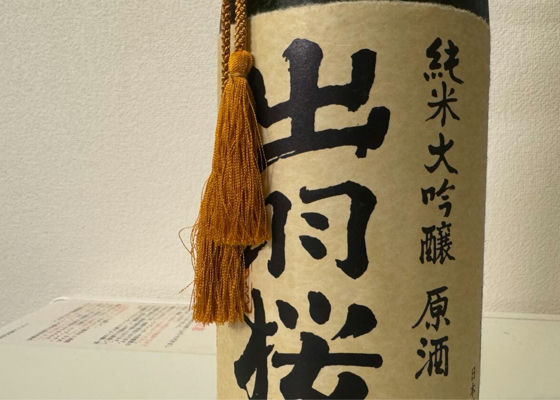 純米大吟醸 原酒
出羽桜
日本